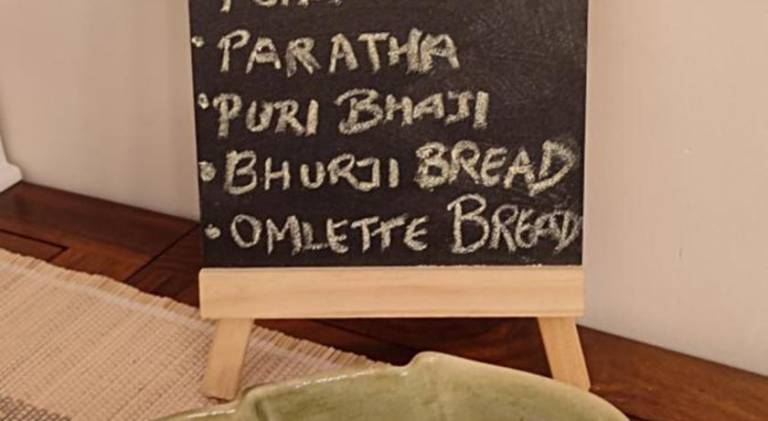 • PARATHA
• PURI BHAJI
• BHURJI BREAD
• OMLETTE BREAD